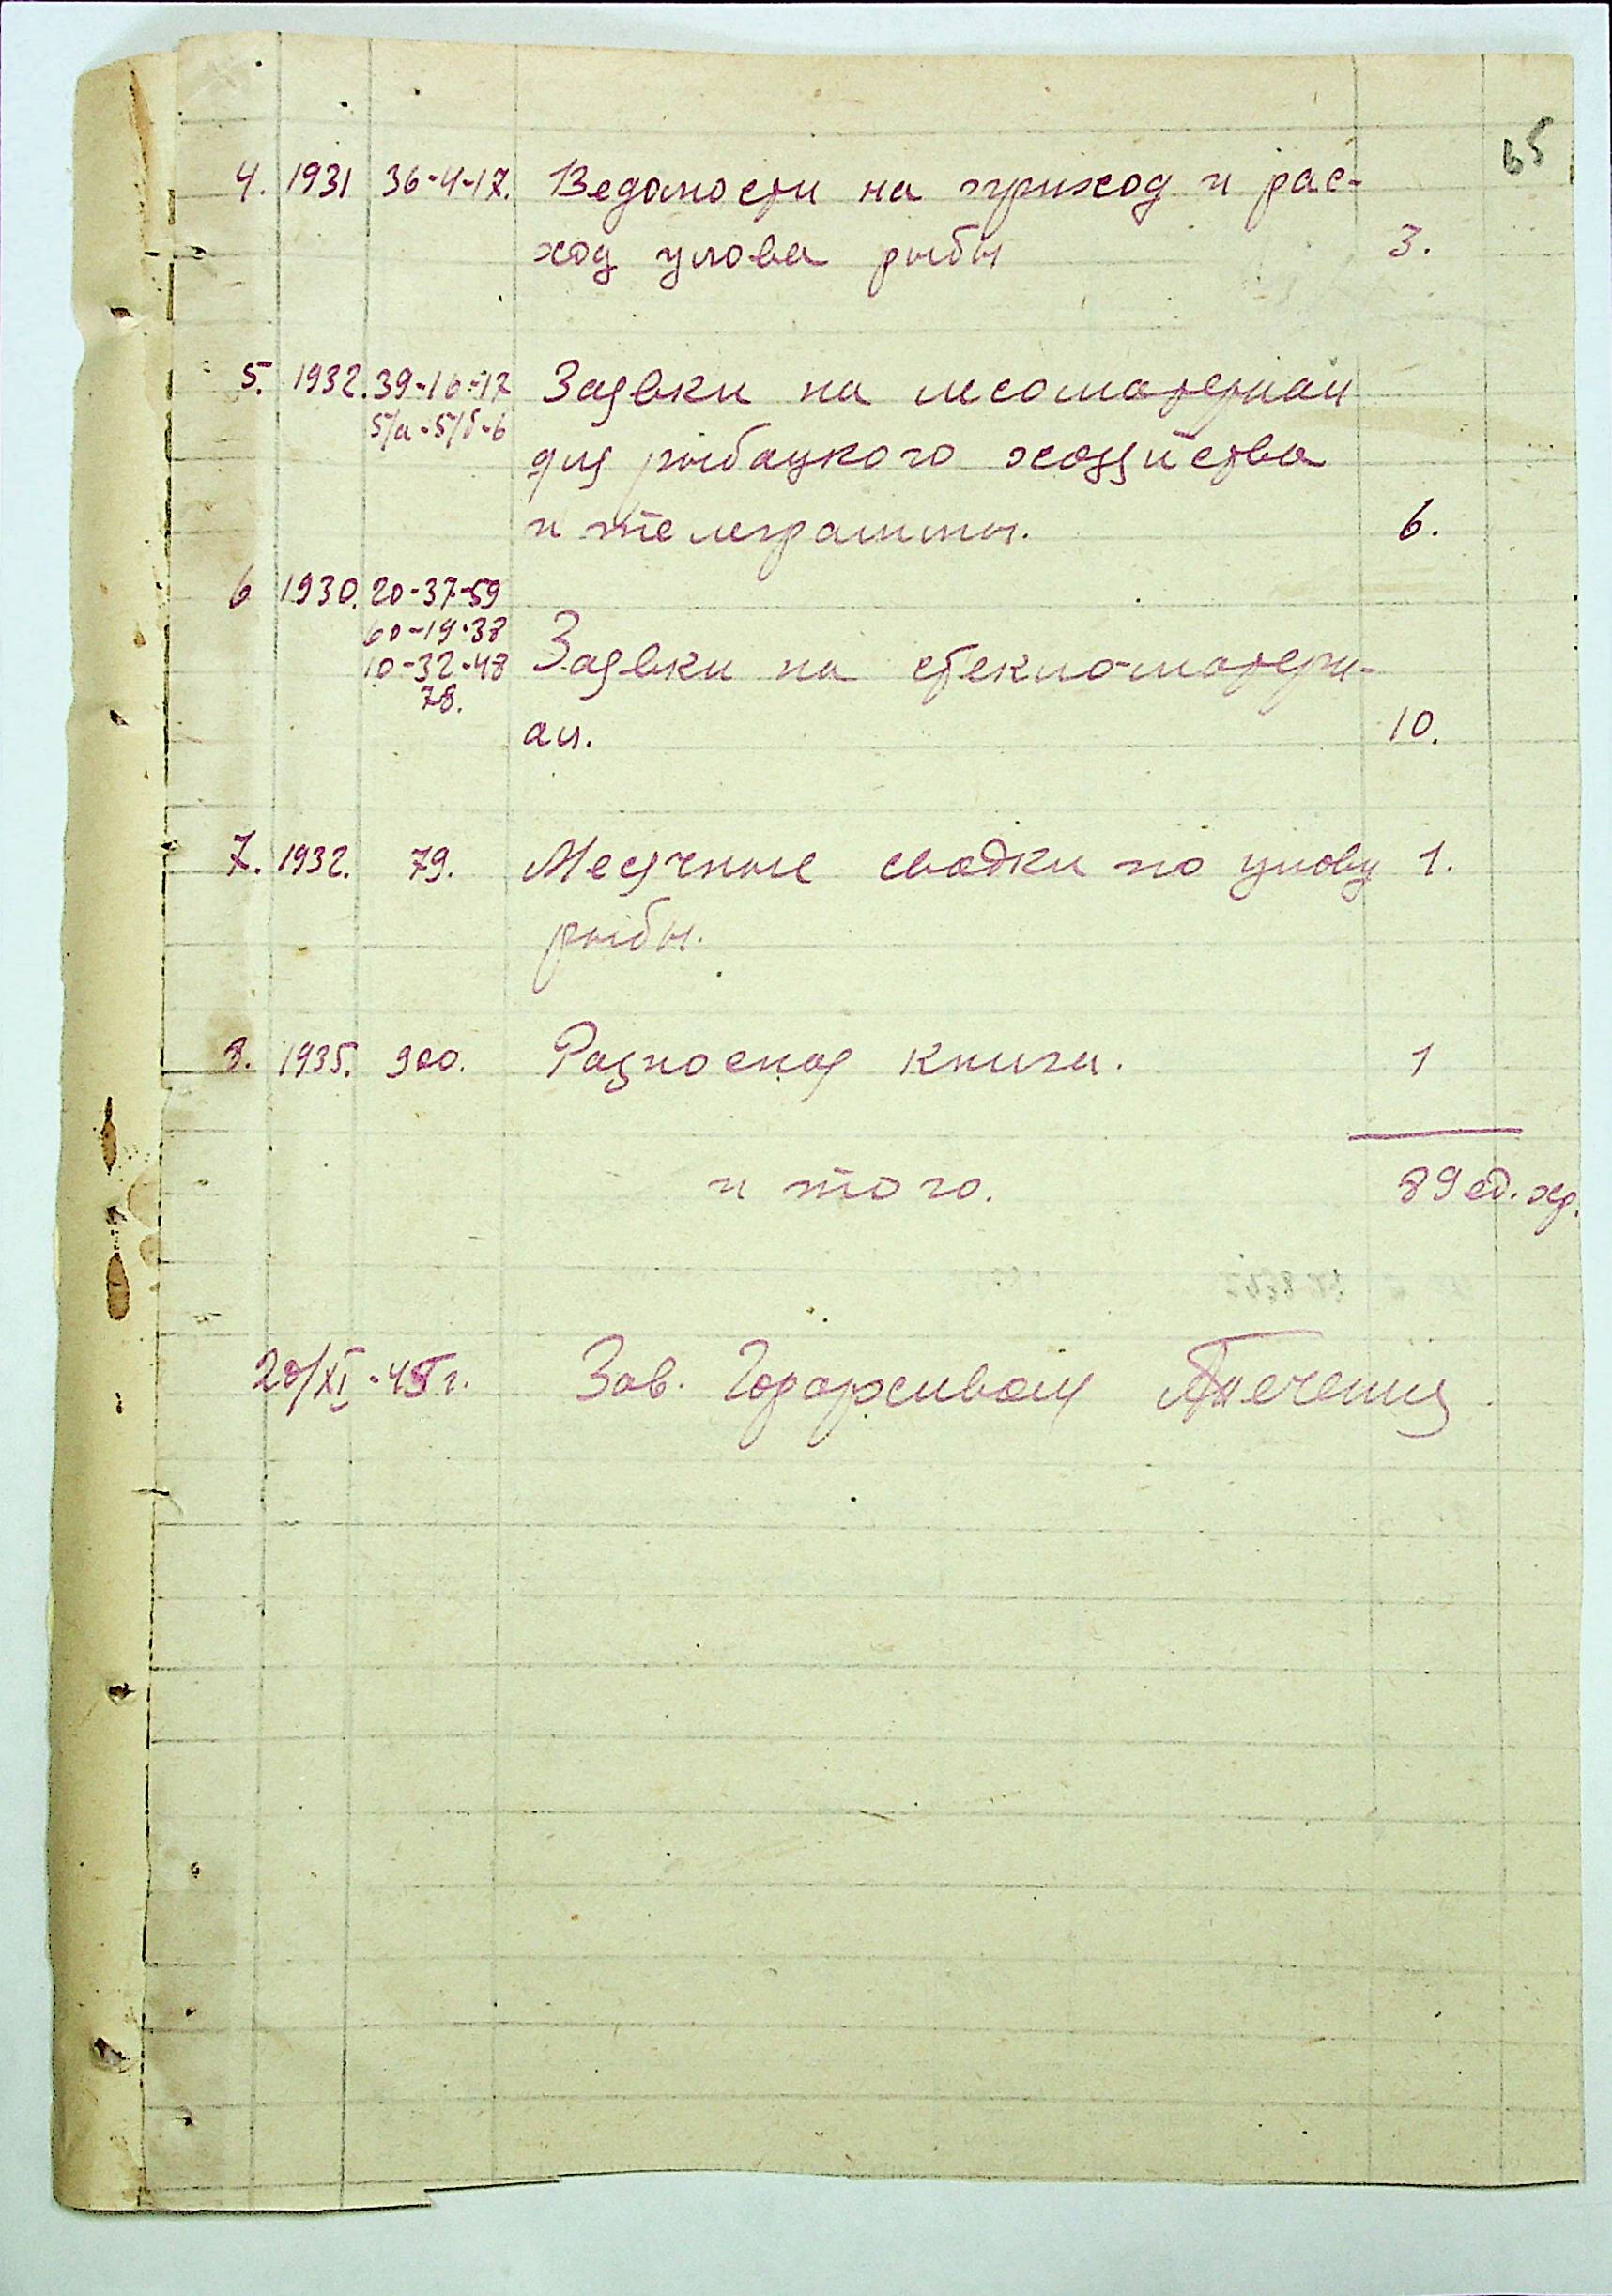 65
4. 1931 36-4-17. Ведомости на приход и рас-
ход улова рыбы 3.
5. 1932. 39-16-17 Заявки на лесоматериал
5/а-5/б-6
для рыбацкого хозяйства
и телеграммы. 6.
6 1930. 20-37-59
60-19-38
10-32-48 Заявки на стекломатери-
78.
ал. 10.
7. 1932. 79. Месячные сводки по улову 1.
рыбы.
8. 1935. 900. Разносная книга. 1
и того. 89 ед. хр.
20/XI-45 г. Зав. Горархивом